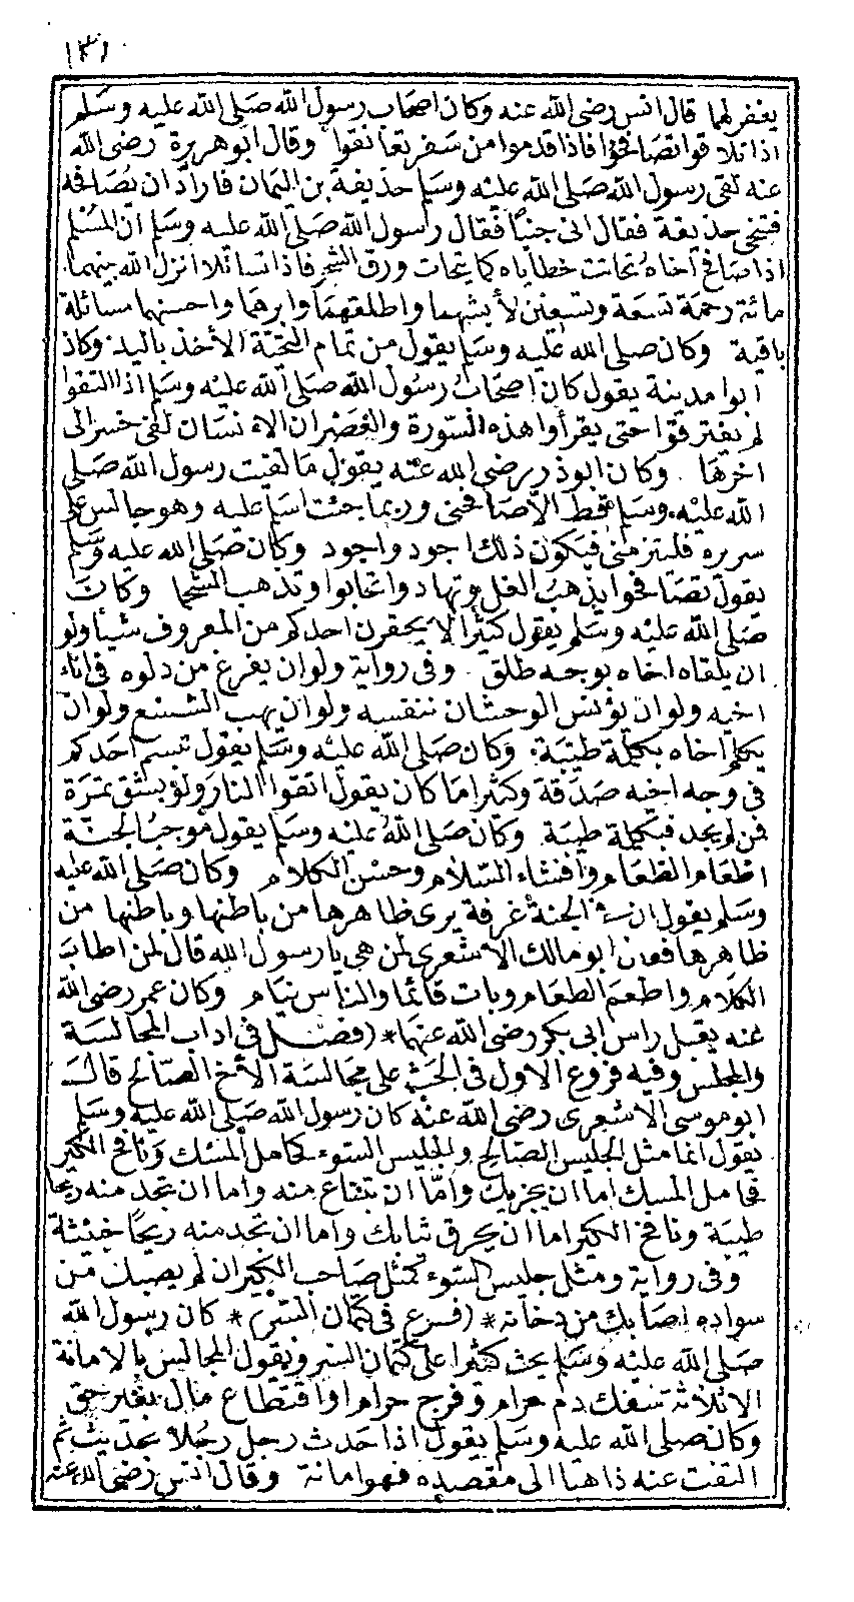 ١٣١
يغفر لهما قال انس رضى الله عنه وكان اصحاب رسول الله صلى الله عليه وسلم
اذا تلاقوا تصافحوا فاذا قدموا من سفر تعانقوا وقال ابو هريرة رضى الله
عنه لقى رسول الله صلى الله عليه وسلم حذيفة بن اليمان فاراد ان يصافحه
فتنحى حذيفة فقال انى جنبا فقال رسول الله صلى الله عليه وسلم ان المسلم
اذا صافح اخاه تحاتت خطاياه كما يتحات ورق الشجر فاذا تسائلا انزل الله بينهما
مائة رحمة تسعة وتسعين لأبشهما واطلقهما وابرهما واحسنهما مسائلة
باقية وكان صلى الله عليه وسلم يقول من تمام التحية الأخذ باليد وكان
ابوا مدينة يقول كان اصحاب رسول الله صلى الله عليه وسلم اذا التقوا
لم يفترقوا حتى يقرأوا هذه السورة والعصر ان الانسان لفى خسر الى
اخرها وكان ابوذر رضى الله عنه يقول ما لقيت رسول الله صلى
الله عليه وسلم قط الا صافحنى وربما جئت اسلم عليه وهو جالس على
سريره فليتزمنى فيكون ذلك اجود واجود وكان صلى الله عليه وسلم
يقول تصافحوا يذهب الغل وتهادوا تحابوا وتذهب الشحنا وكان
صلى الله عليه وسلم يقول كثيرا لا يحقرن احدكم من المعروف شيأ ولو
ان يلقاه اخاه بوجه طلق وفى رواية ولو ان يفرغ من دلوه فى اناء
اخيه ولو ان يؤنس الوحشان بنفسه ولو ان يهب الشسع ولو ان
يكلم اخاه بكلمة طيبة وكان صلى الله عليه وسلم يقول تبسم احدكم
فى وجه اخيه صدقة وكثيرا ما كان يقول اتقوا النار ولو بشق تمرة
فمن لم يجد فبكلمة طيبة وكان صلى الله عليه وسلم يقول موجب الجنة
اطعام الطعام وافشاء السلام وحسن الكلام وكان صلى الله عليه
وسلم يقول ان فى الجنة غرفة يرى ظاهرها من باطنها وباطنها من
ظاهرها فقال ابو مالك الاشعرى لمن هى يا رسول الله قال لمن اطاب
الكلام واطعم الطعام وبات قائما والناس نيام وكان عمر رضى الله
عنه يقبل راس ابى بكر رضى الله عنهما * (فصل فى اداب المجالسة
والمجلس وفيه فروع الاول فى الحث على مجالسة الأخ الصالح قال
ابو موسى الاشعرى رضى الله عنه كان رسول الله صلى الله عليه وسلم
يقول انما مثل الجليس الصالح والجليس السوء كحامل المسك ونافخ الكير
فحامل المسك اما ان يجزيك واما ان تبتاع منه واما ان تجد منه ريحا
طيبة ونافخ الكير اما ان يحرق ثيابك واما ان تجد منه ريحا خبيثة
وفى رواية ومثل جليس السوء كمثل صاحب الكير ان لم يصبك من
سواده اصابك من دخانه * (فرع فى كتمان السر) * كان رسول الله
صلى الله عليه وسلم يحث كثيرا على كتمان السر ويقول المجالس بالامانة
الا ثلاثة سفك دم حرام وفرج حرام او اقتطاع مال بغير حق
وكان صلى الله عليه وسلم يقول اذا حدث رجل رجلا بحديث ثم
التفت عنه ذاهبا الى مقصده فهو امانة وقال انس رضى الله عنه